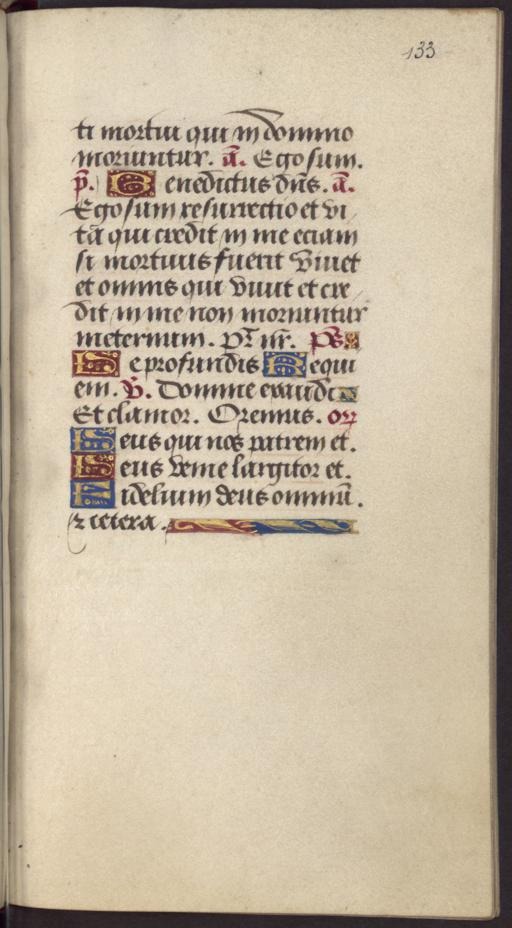 133
ti mortui qui in domino
moriuntur. a̅. Ego sum.
p̅. Benedictus dn̅s. a̅.
Ego sum resurrectio et vi
ta̅ qui credit in me eciam
si mortuus fuerit viuet
et omnis qui viuit et cre
dit in me non morientur
ineternum. Pr̅ nr̅. ps̅
De profundis Requi
em. V̅. Domine exaudi
Et clamor. Oremus. or̅
Deus qui nos patrem et.
Deus venie largitor et.
Fidelium deus omniu̅.
⁊ cetera.